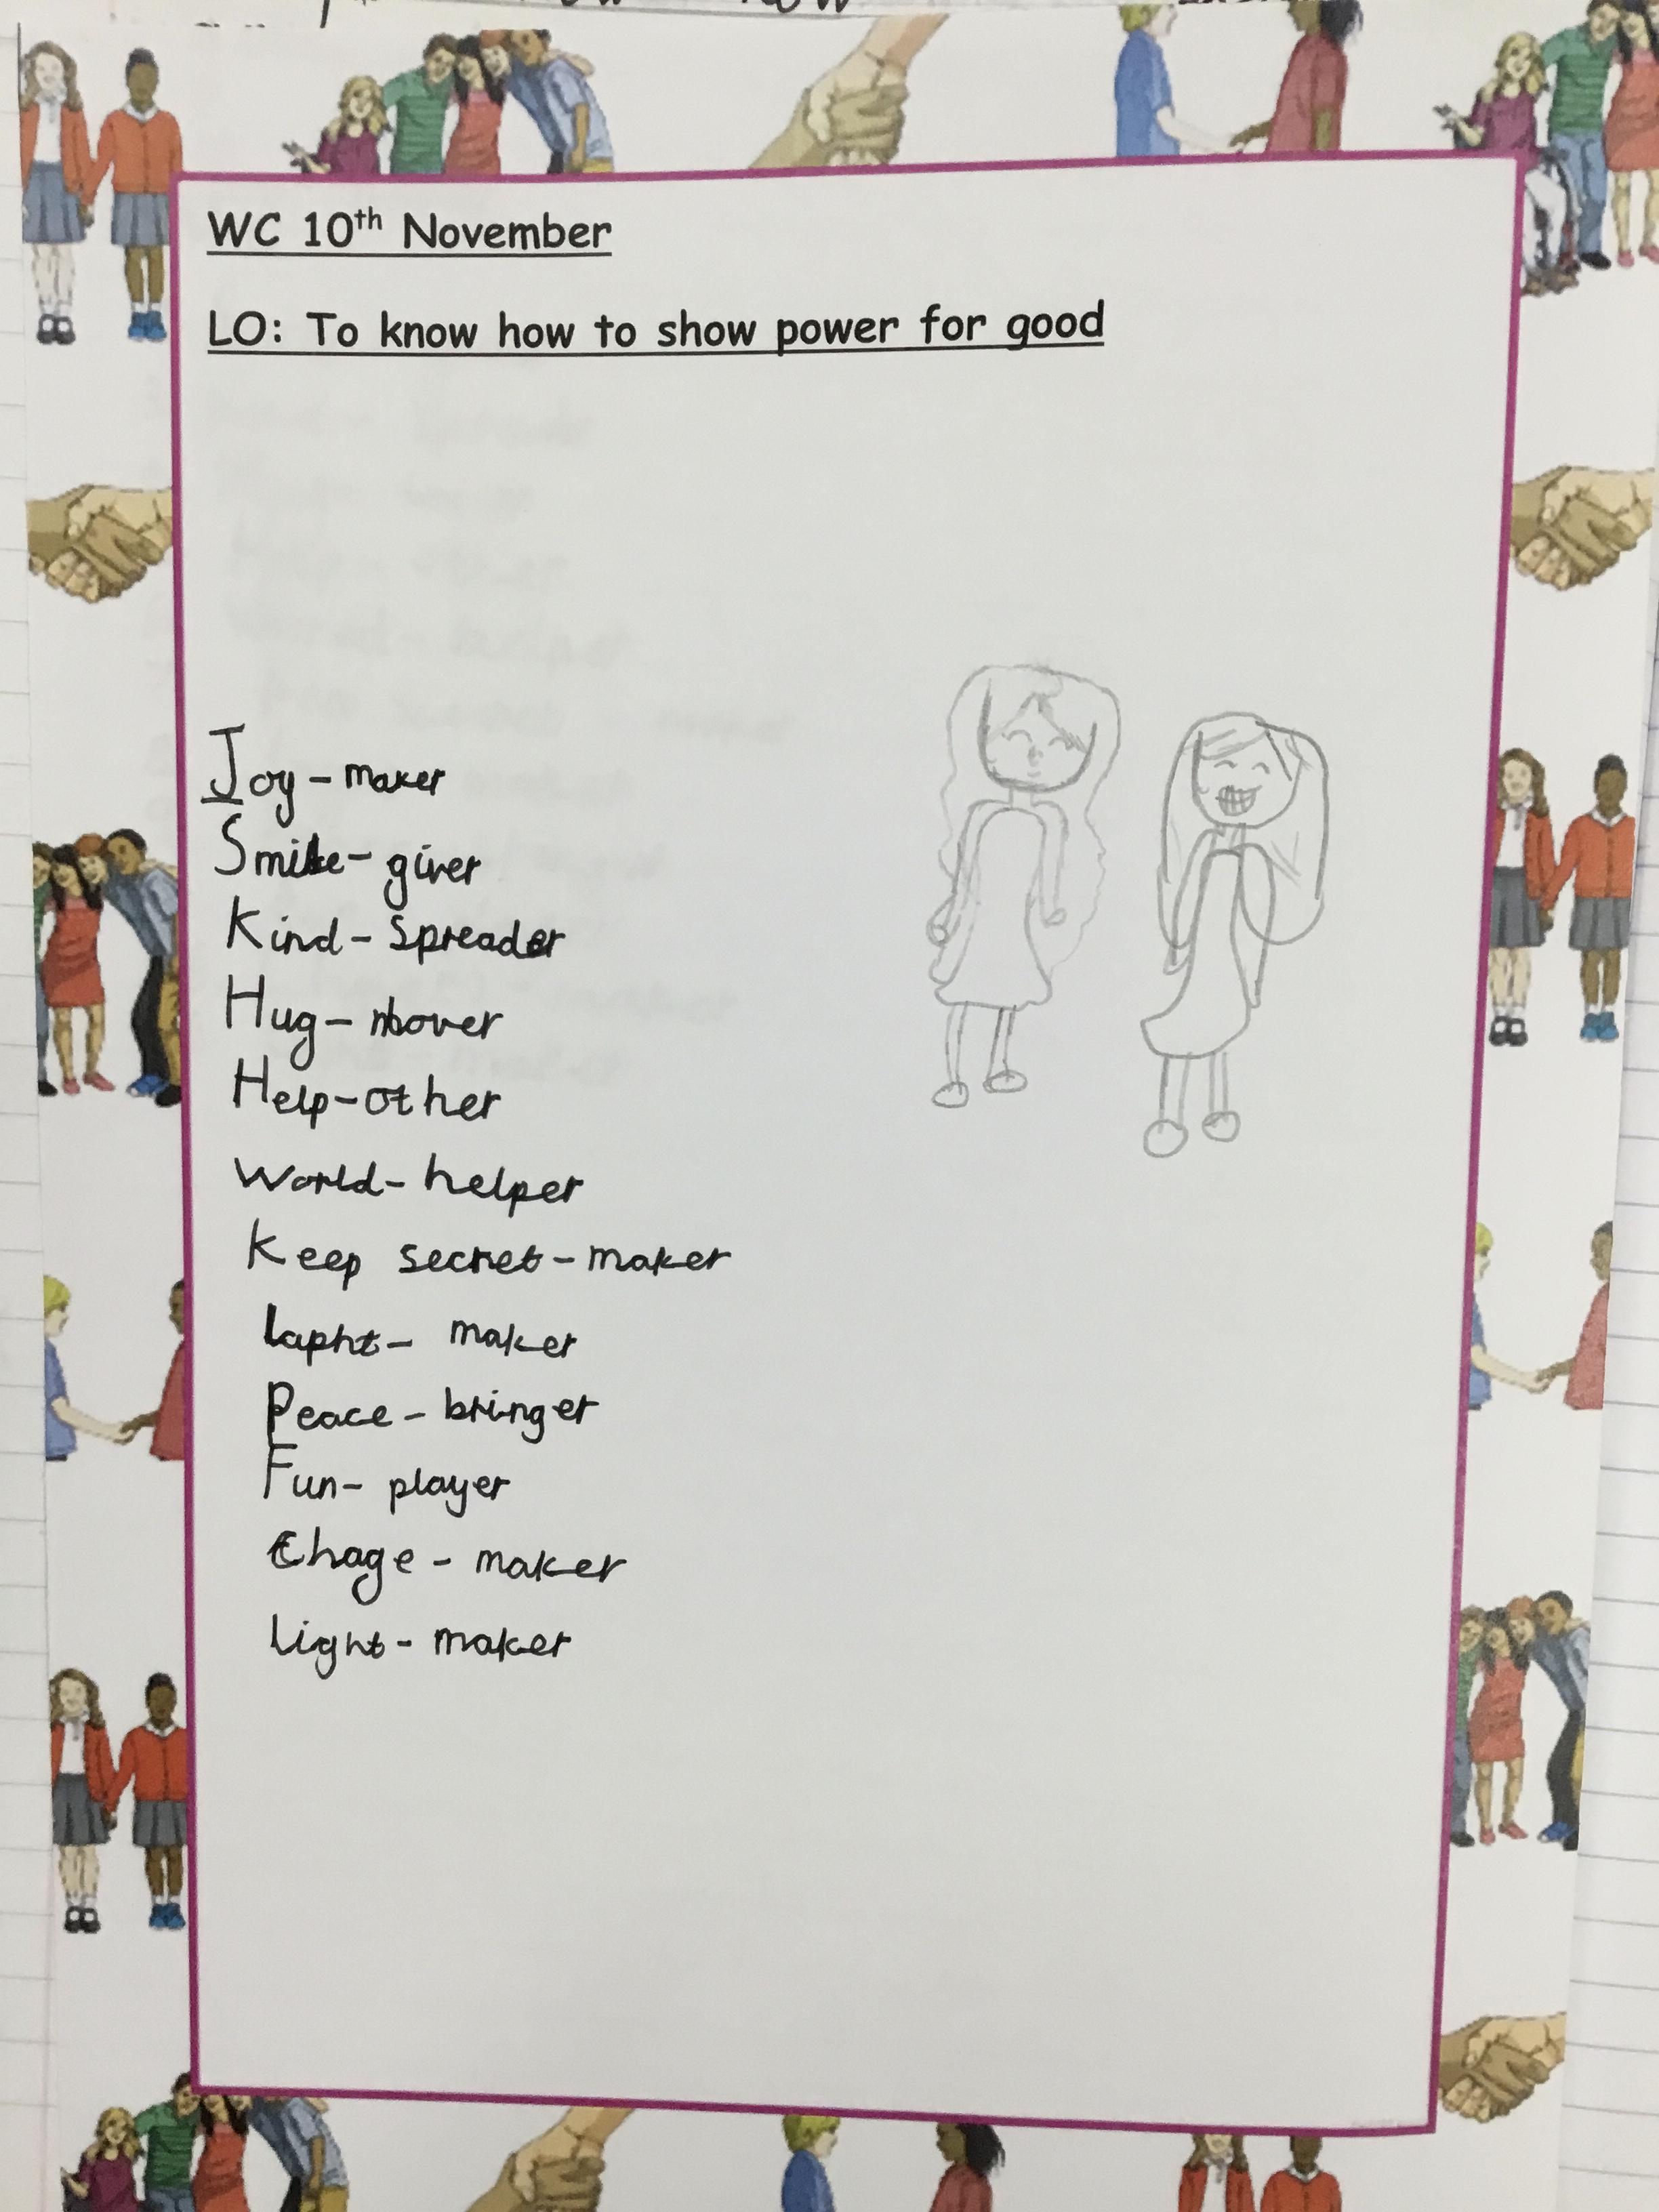 WC 10th November
LO: To know how to show power for good
Joy - maker
Smile - giver
Kind - spreader
Hug -
Help - other
World - helper
Keep secret - maker
Lapht - maker
Peace - bringer
Fun - player
Chage - maker
Light - maker